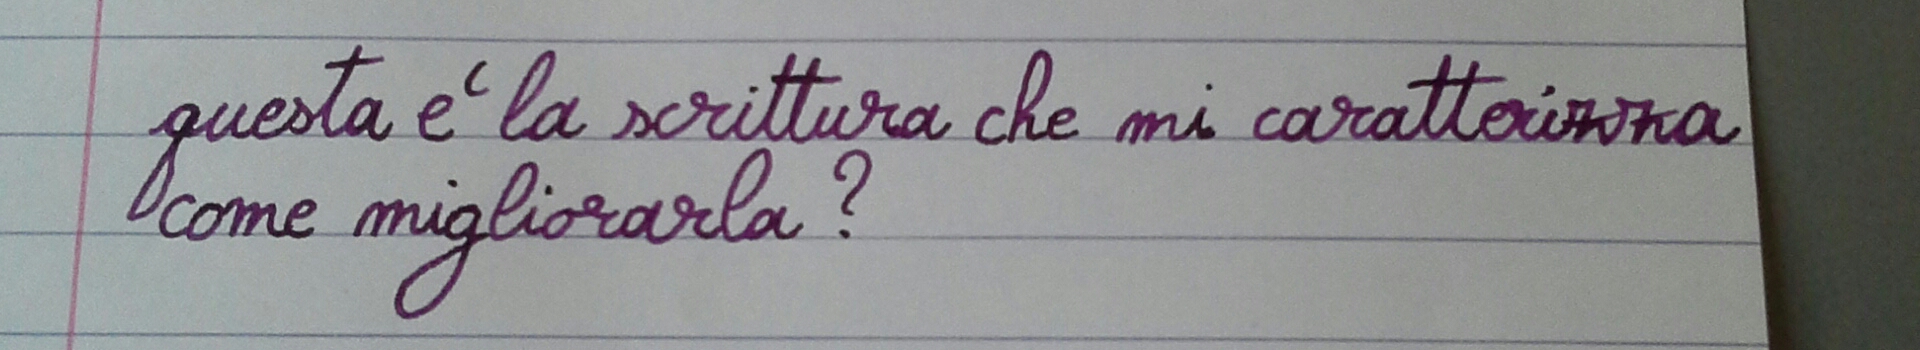 questa e' la scrittura che mi caratterizza
come migliorarla?